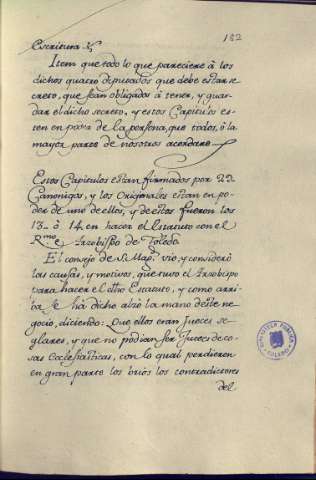 182
escritura &.
Item que todo lo que pareciere à los
dichos quatro deputados que debe estar se
creto, que sean obligados à tener, y guar-
dar el dicho secreto, y estos Capitulos es-
ten en poder de la persona, que todos, ò la
mayor parte de nosotros acordare.
Estos Capitulos estan firmados por 22
Canonigos, y los Originales estan en po-
der de uno de ellos, y de estos fueron los
13. ò 14 en hacer el Estatuto con el
R.mo Arzobispo de Toledo.
El consejo de S. Mag.d vio, y considerò
las causas, y motivos, que tuvo el Arzobispo
para hacer el dho Estatuto, y como arri-
ba se ha dicho alzò la mano de este ne-
gocio, diciendo: Que ellos eran Jueces se-
glares, y que no podian ser Jueces de co-
sas Eclesiasticas, con lo qual perdieron
en gran parte los brios los contradictores
del
BIBLIOTECA PUBLICA
TOLEDO